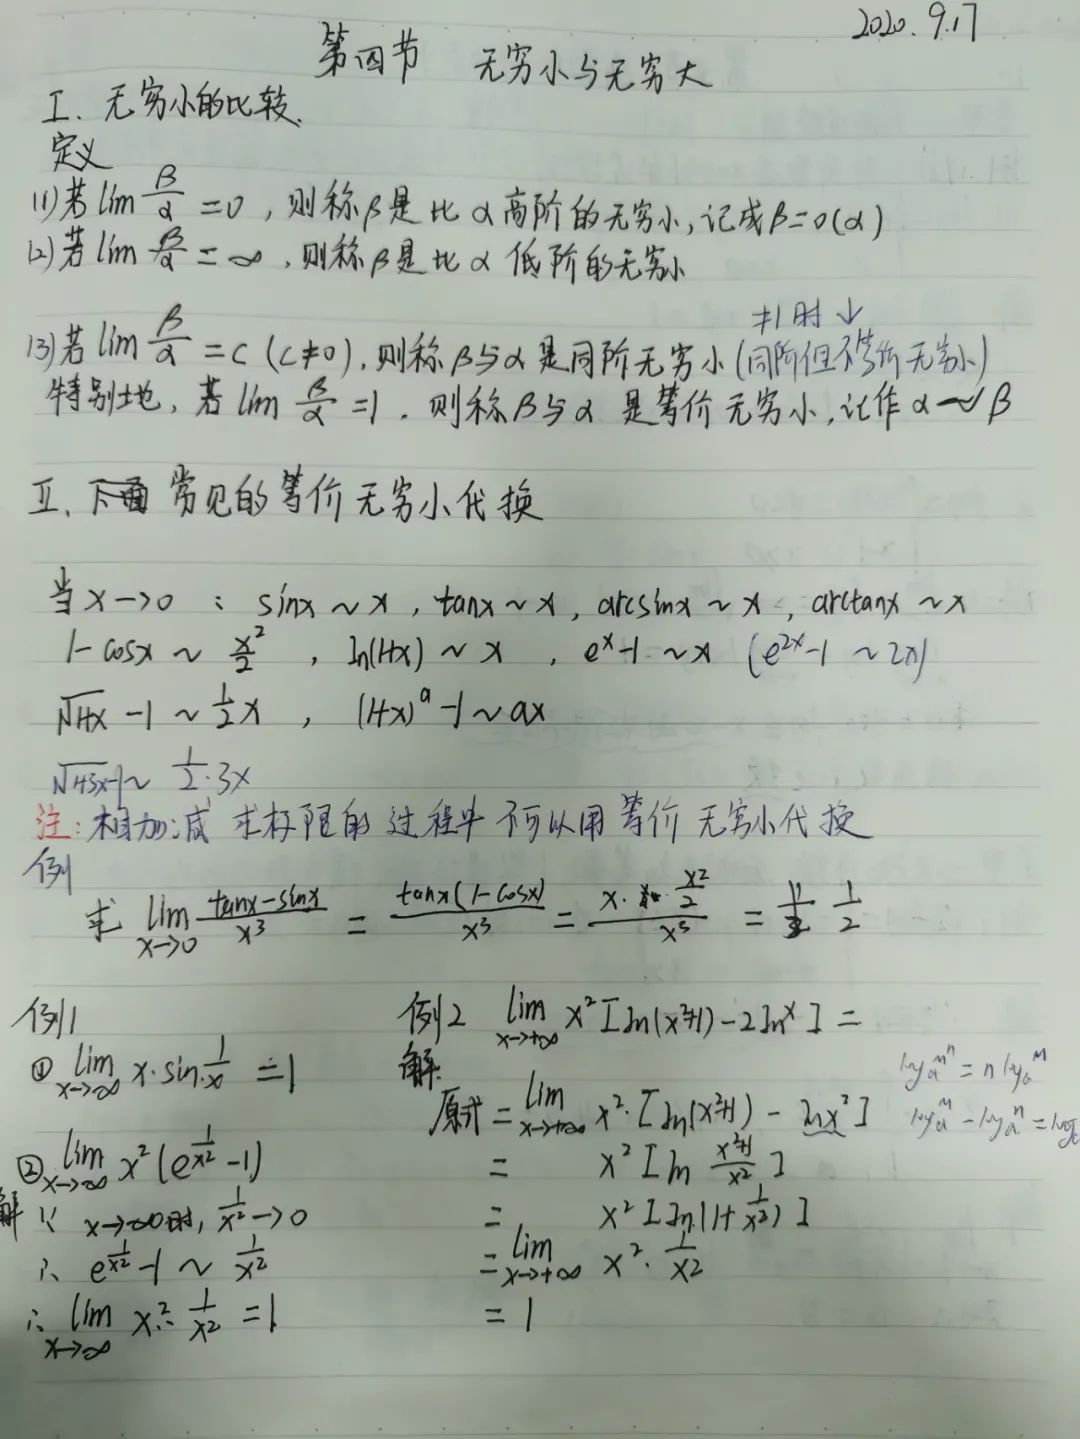 2020.9.17
第四节 无穷小与无穷大
I. 无穷小的比较.
定义
(1)若lim β/α =0,则称β是比α高阶的无穷小,记成β=o(α)
(2)若lim β/α =∞,则称β是比α低阶的无穷小
≠1时↓
(3)若lim β/α =C(C≠0),则称β与α是同阶无穷小(同阶但不等价无穷小)
特别地,若lim β/α =1,则称β与α是等价无穷小,记作α~β
II. 常见的等价无穷小代换
当x→0:sinx~x,tanx~x,arcsinx~x,arctanx~x
1-cosx~x²/2,ln(1+x)~x,e^x-1~x (e^{2x}-1~2x)
√(1+x) -1~1/2 x,(1+x)^a-1~ax
√(1+3x)-1~1/2·3x
注:相加减求极限的过程中不可以用等价无穷小代换
例
求 lim x→0 (tanx-sinx)/x³ = tanx(1-cosx)/x³ = (x·x²/2)/x³ = 1/2
例1
① lim x→∞ x·sin·1/x =1
② lim x→∞ x²(e^{1/x²}-1)
解 ∵ x→∞时,1/x²→0
∴ e^{1/x²}-1~1/x²
∴ lim x→∞ x²·1/x² =1
例2 lim x→+∞ x²[ln(x²+1)-2lnx]=
解.
原式=lim x→+∞ x²·[ln(x²+1)-lnx²]
= x²[ln (x²+1)/x²]
= x²[ln(1+1/x²)]
=lim x→+∞ x²·1/x²
=1
log_a M^n = n log_a M
log_a M - log_a n = log